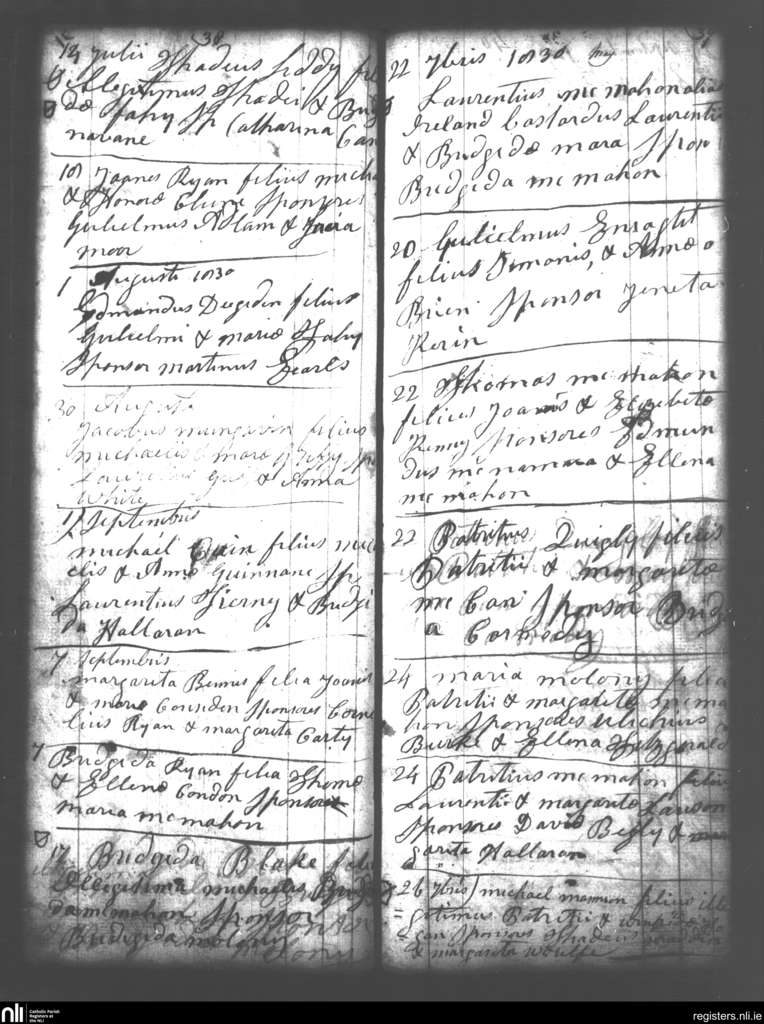 30
14 Julii Thadeus Liddy fili
Illegitimus Thadei & Brid
dæ Fahy Sp Catharina Can
navane
18 Joanes Ryan filius micha
& Honoræ Clune Sponsores
Gulielmus Adlam & maria
moor
1 Augusti 1830
Edmundus Deegidin filius
Gulielmi & mariæ Fahy
Sponsor martinus Earls
30 Augusti
Jacobus mungovin filius
michaelis & maræ Sp
Laurentius & Anna
White
17 Septembris
michaél filius mic
elis & Annæ Guinnane Sp
Laurentius Tierny & Bridgi
da Hallaran
7 Septembris
margarita Bennis filia Joanis
& mariæ Considen Sponsores Corne
lius Ryan & margarita Carty
7 Bridgida Ryan filia Thomæ
& Ellenæ Condon Sponsores
maria mcmahon
17 Bridgida Blake filia
Illegitima michaelis Bridgi
da mcmahon Sponsor
Bridgida molony
22 7bris 1830
Laurentius mc mahon alias
Ireland bastardus Laurentii
& Bridgidæ mara Spon
Bridgida mc mahon
20 Gulielmus Enright
filius Simonis, & Annæ o
Brien Sponsor Jeneta
Kerin
22 Thomas mc mahon
filius Joanis & Elizabetæ
Kenny Sponsores Edmun
dus mcnamara & Ellena
mc mahon
22 Patritius Quigly filius
Patritii & margaritæ
mc Can Sponsor Brid
a Cormody
24 maria molony filia
Patritii & margaritæ mcma
hon Sponsores Ulichius
Burke & Ellena Fitzgerald
24 Patritius mc mahon filiu
Laurentii & margaritæ Lawson
Sponsores David Begly & mar
garita Hallaran
26 7bris michael mannion filius ille
gitimus Patritii &
gan Sponsores Thadeus
& margarita Woulfe
nli
Catholic Parish
Registers at
the NLI
registers.nli.ie